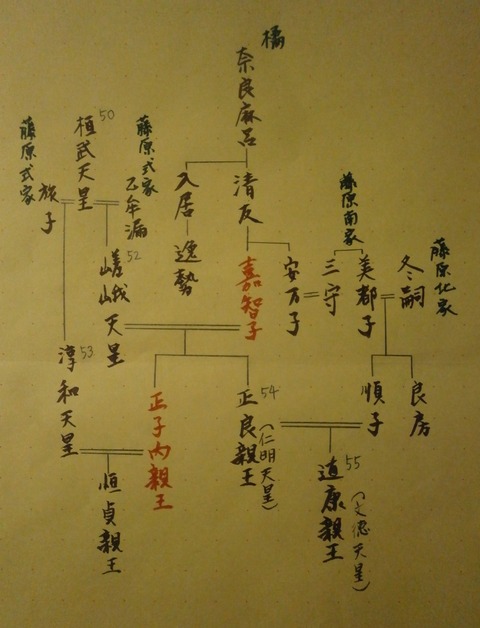 橘
奈良麻呂
入居
逸勢
清友
嘉智子
安万子
藤原南家
三守
美都子
冬嗣
藤原北家
順子
良房
藤原式家
旅子
桓武天皇
50
藤原式家
乙牟漏
嵯峨天皇
52
淳和天皇
53
正子内親王
正良親王
54
(仁明天皇)
道康親王
55
(文徳天皇)
恒貞親王